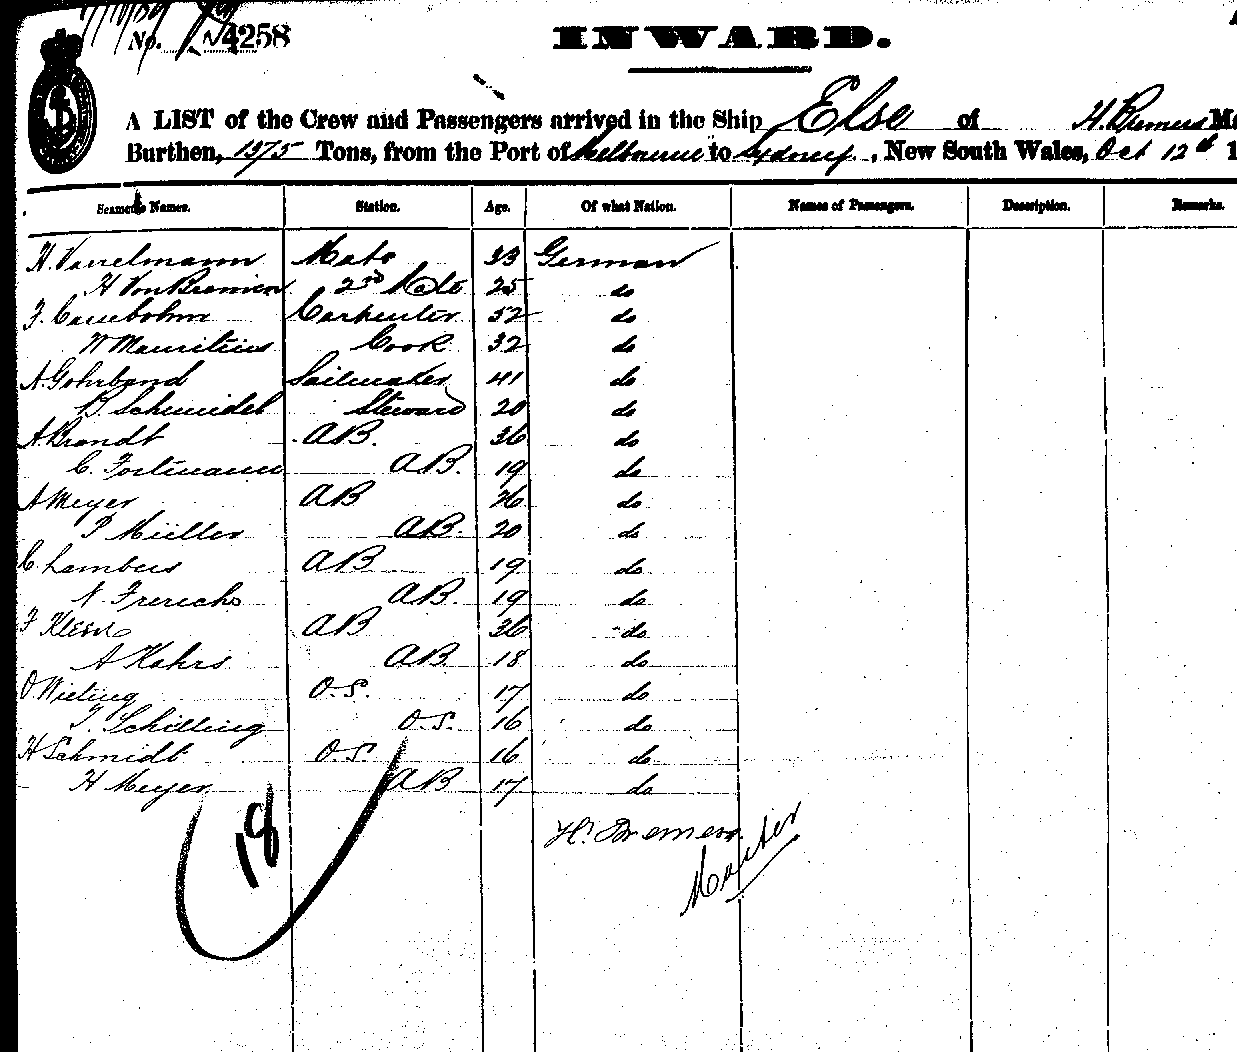 No. 4258
INWARD.
A LIST of the Crew and Passengers arrived in the Ship Else of H. Bremers
Burthen, 1375 Tons, from the Port of Melbourne to Sydney, New South Wales, Oct 12th 1
Seamen's Names. Station. Age. Of what Nation. Names of Passengers. Description. Remarks.
H. Mate 33 German
H Von Bremen 2nd Mate 25 do
F. Carpenter 52 do
W Mauritius Cook 32 do
A. Gohrband Sailmaker 41 do
B. Schmidel Steward 20 do
A. Brandt A.B. 36 do
C. Fortmann A.B. 19 do
A Meyer AB 26 do
P Müller A.B. 20 do
C. Lambers AB 19 do
N. Frerichs A.B. 19 do
F Kleen AB 36 do
A Kahrs A.B. 18 do
O Wieting O.S. 17 do
T. Schilling O.S. 16 do
H Schmidt O.S 16 do
H Meyer AB 17 do
18
H. Bremers
Master